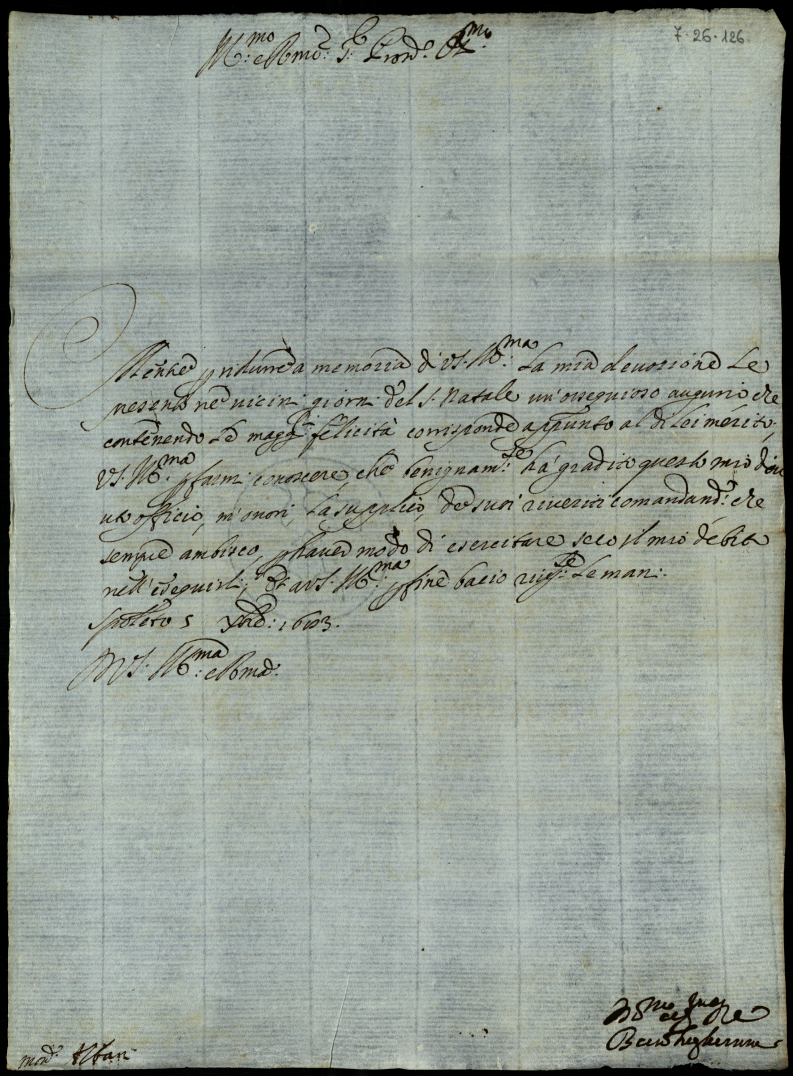 7·26·126
Ill:mo e Rmo: Sre Pron: Col:mo
Mentre p ridurre a memoria di VS: Ill:ma la mia devozione Le
presento ne vicini giorni del S. Natale un'ossequioso augurio che
contenendo Le magg:ri felicità corrisponde appunto al di Lei merito,
VS: Ill:ma p farmi conoscere, che benignam:te ha gradito questo mio
officio, m'onori La supplico, de suoi riveriti comandam: che
sempre ambisco, p haver modo di esercitare seco il mio debito
nell'eseguirli; Et a VS: Ill:ma p fine bacio le mani:
Spoleto 5 Xbre: 1693.
Di VS: Ill:ma e Rma:
Mons: Albani